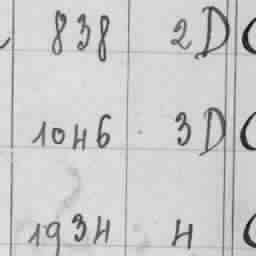 838 2D
1046 3D
1934 4